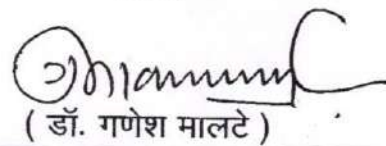 ( डॉ. गणेश मालटे )